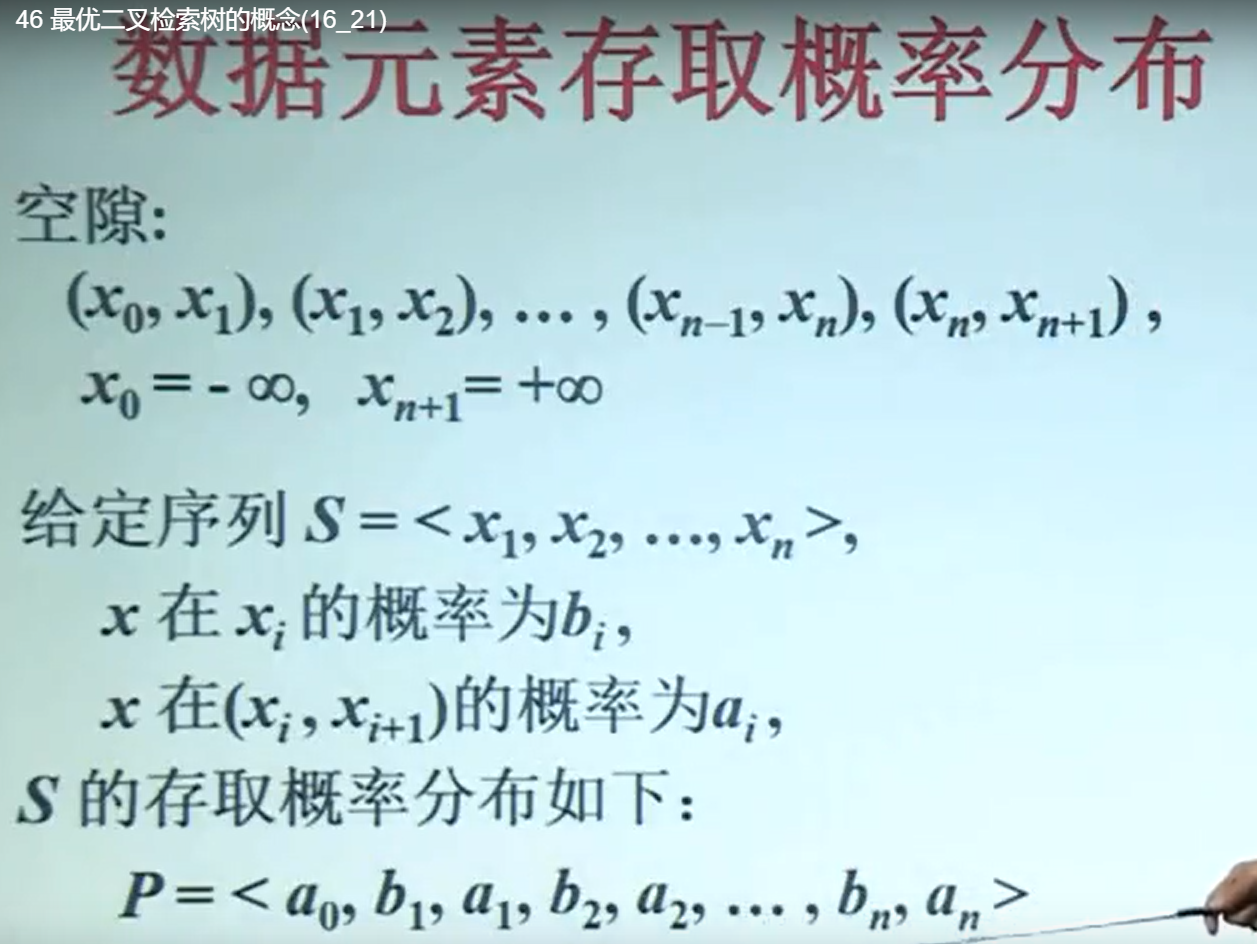 46 最优二叉检索树的概念(16_21)
数据元素存取概率分布
空隙:
(x₀, x₁), (x₁, x₂), … , (xₙ₋₁, xₙ), (xₙ, xₙ₊₁) ,
x₀ = - ∞, xₙ₊₁= +∞
给定序列 S = < x₁, x₂, …, xₙ >,
x 在 xᵢ 的概率为bᵢ ,
x 在(xᵢ , xᵢ₊₁)的概率为aᵢ ,
S 的存取概率分布如下：
P = < a₀, b₁, a₁, b₂, a₂, … , bₙ, aₙ >